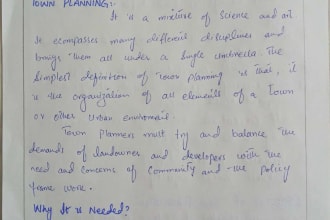 TOWN PLANNING:-
It is a mixture of Science and art.
It ecompasses many different disciplines and
brings them all under a single umbrella. The
Simplest definition of Town planning is that, it
is the organization of all elements of a Town
or other urban enviroment.
Town planners must try and balance the
demands of landowner and developers with the
need and concerns of community and the policy
frame work.
Why It is Needed?